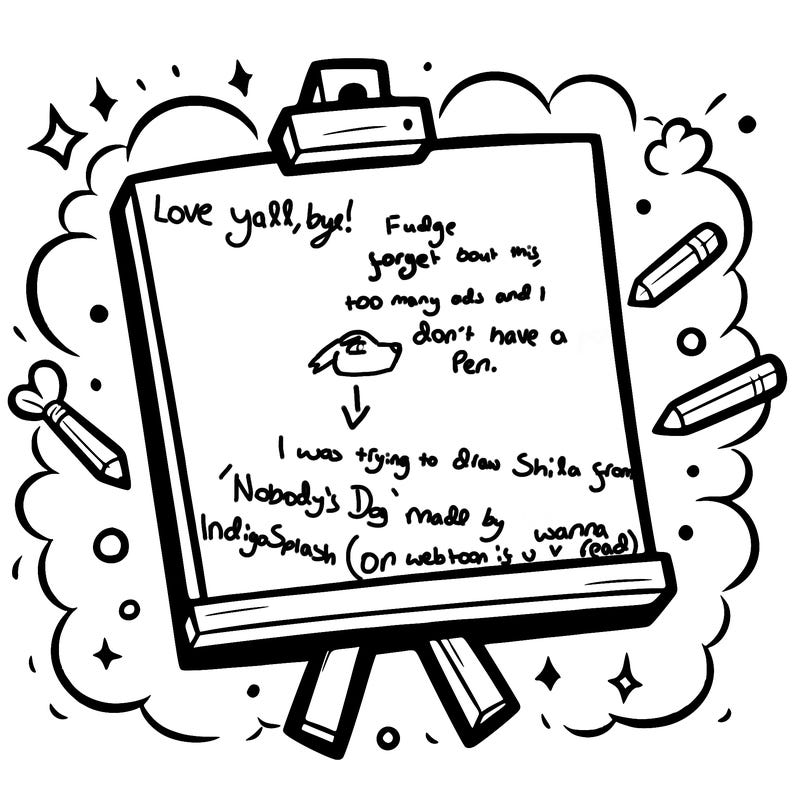 Love yall, bye!
Fudge
forget bout this,
too many ads and I
don't have a
Pen.
I was trying to draw Shila from
'Nobody's Dog' made by
IndigoSplash (on webtoon if u wanna read)